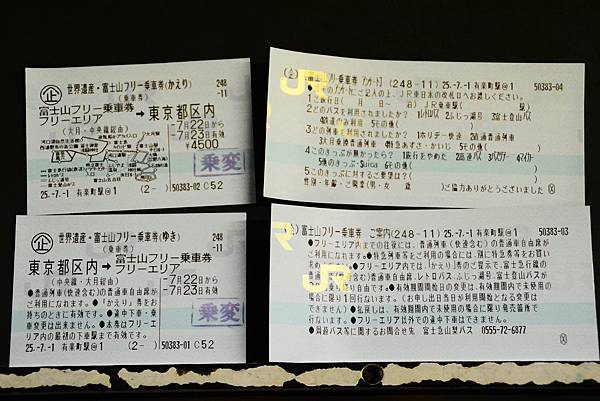 企
世界遺産・富士山フリー乗車券(かえり) 248
(乗車券) -11
富士山フリー乗車券
フリーエリア → 東京都区内
(大月・中央線経由)
-7月22日から
-7月23日有効
¥4500
乗変
25.-7.-1 有楽町駅@1 (2- ) 50383-02 C52
富士山フリー乗車券 アンケート (248-11) 25.-7.-1 有楽町駅@1 50383-04
ご記入の上、JR東日本の改札口へお渡しください。
1ご旅行日( 月 日 泊) JR乗車駅( 駅)
2どのバスを利用されましたか? 1レトロバス 2ふじっ湖号 3富士登山バス
4鉄道のみ利用 5その他( )
3どの列車を利用されましたか? 1ホリデー快速 2普通普通列車
5その他( )
4このきっぷが無かったら? 1旅行をやめた 2高速バス 3バスツアー 4マイカー
5他のきっぷ・Suica 6その他( )
5このきっぷに対するご要望は?( )
性別・年齢・ご職業(男・女 歳 )ご協力ありがとうございました
企
世界遺産・富士山フリー乗車券(ゆき) 248
(乗車券) -11
東京都区内 → 富士山フリー乗車券
フリーエリア
(中央線・大月経由)
-7月22日から
-7月23日有効
●普通列車(快速含む)の普通車自由席が
ご利用になれます。●「かえり」券をお
持ちのときに有効です。●途中下車・乗
車変更は出来ません。●本券はフリーエ
リア内の最初の下車駅まで有効です。
乗変
25.-7.-1 有楽町駅@1 (2- ) 50383-01 C52
富士山フリー乗車券 ご案内(248-11) 25.-7.-1 有楽町駅@1 50383-03
●フリーエリア内までの往復には、普通列車(快速含む)の普通車自由席が
ご利用になれます。●特急列車等をご利用の場合には、別に特急券等をお買い
求め ●フリーエリア内では、「かえり」券のご提示で、富士急行線の
普通車自由席、レトロバス・ふじっ湖号、富士登山バスが
乗り降り自由です。●有効期間開始日の変更は、有効期間内で未使用の
場合に限り1回行ないます。(お申し出当日が利用開始となる変更は
できません)●払戻しは、有効期間内で未使用の場合に限り発売箇所で
行ないます。●フリーエリア以外での途中下車はできません。
●周遊バス等に関するお問合せ先 富士急山梨バス 0555-72-6877